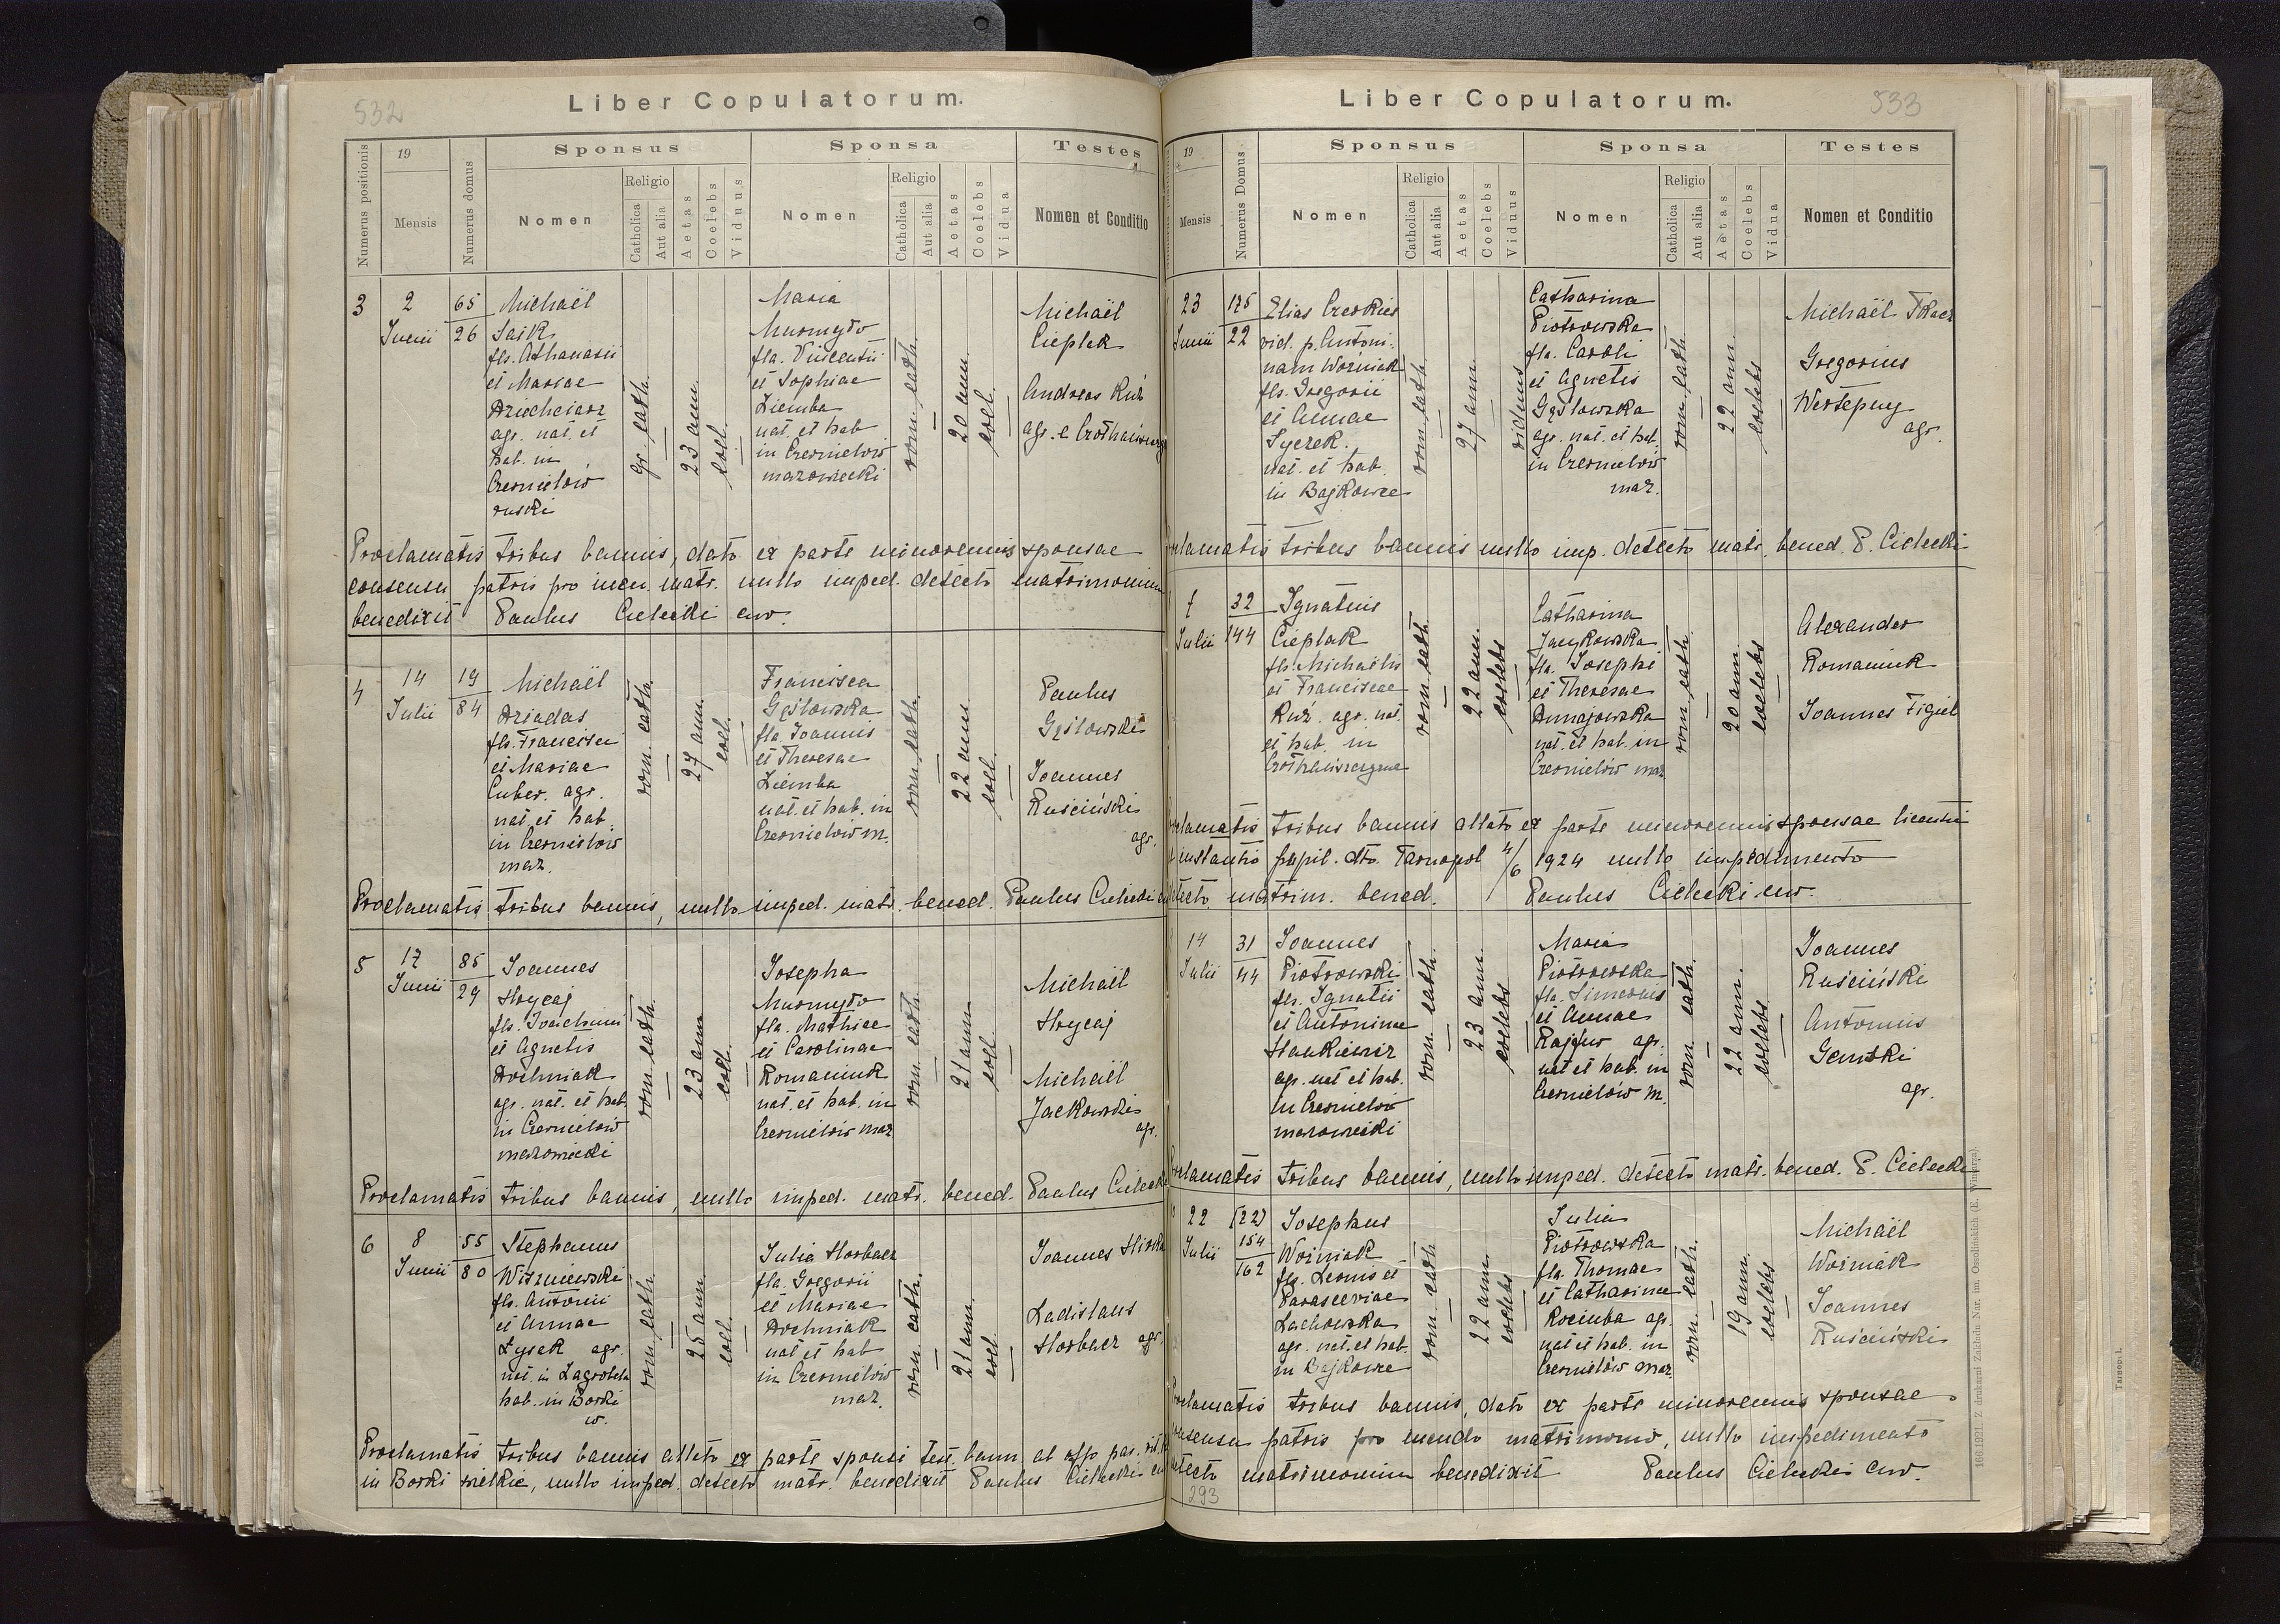 532
Liber Copulatorum.
Numerus positionis
19
Mensis
Numerus domus
Sponsus
Nomen
Religio
Catholica
Aut alia
Aetas
Coelebs
Viduus
Sponsa
Nomen
Religio
Catholica
Aut alia
Aetas
Coelebs
Vidua
Testes
Nomen et Conditio
3
2
Junii
65
26
Michaël
Saik
fls. Athanasii
et Mariae
agr. nat. et
hab. in
Czernielów
ruski
gr. cath.
23 ann.
coel.
Maria
fla. Vincentii
et Sophiae
Ziemba
nat. et hab
in Czernielów
mazowiecki
rom. cath.
20 ann.
coel.
Michaël
Cieplak
Andreas Ruź
agr. e
Proclamatis tribus bannis, dato ex parte minorennis sponsae
consensu patris pro ineu. matr. nullo imped. detecto matrimonium
benedixit Paulus Cielecki cur.
4
14
Julii
19
84
Michaël
Dziadas
fls. Francisci
et Mariae
Cuber. agr.
nat. et hab.
in Czernielów
maz.
rom. cath.
27 ann.
coel.
Francisca
Gęstowska
fla. Joannis
et Theresae
Ziemba
nat. et hab. in
Czernielów m.
rom. cath.
22 ann
coel.
Paulus
Gęstowski
Joannes
Ruściński
agr.
Proclamatis tribus bannis, nullo imped. matr. bened. Paulus Cielecki
5
17
Junii
85
29
Joannes
Hrycaj
fls. Joachimi
et Agnetis
Dochniak
agr. nat. et hab.
in Czernielów
mazowiecki
rom. cath.
23 ann
coel.
Josepha
fla. Mathiae
et Carolinae
Romaniuk
nat. et hab. in
Czernielów maz
rom. cath.
21 ann
coel.
Michaël
Hrycaj
Michaël
Jackowski
agr.
Proclamatis tribus bannis, nullo imped. matr. bened. Paulus Cielecki
6
8
Junii
55
80
Stephanus
Wiszniewski
fls. Antonii
et Annae
Łysak agr.
nat. in Zagrobela
hab. in Borki
w.
rom. cath.
25 ann.
coel.
Julia Horbacz
fla. Gregorii
et Mariae
Dochniak
nat et hab
in Czernielów
maz.
rom. cath.
21 ann.
coel.
Joannes
Ladislaus
Horbacz agr.
Proclamatis tribus bannis allato ex parte sponsi test. bann. ab off. par. rit. lat
in Borki wielkie, nullo imped. detecto matr. benedixit Paulus Cielecki
533
Liber Copulatorum.
19
Mensis
Numerus Domus
Sponsus
Nomen
Religio
Catholica
Aut alia
Aetas
Coelebs
Viduus
Sponsa
Nomen
Religio
Catholica
Aut alia
Aetas
Coelebs
Vidua
Testes
Nomen et Conditio
23
Junii
175
22
Elias
vid. p. Antoni-
nam Woźniak
fls. Gregorii
et Annae
Syczek.
nat. et hab.
in Bajkowce
rom. cath.
27 ann.
viduus
Catharina
Piotrowska
fla. Caroli
et Agnetis
Gęstowska
agr. nat. et hab.
in Czernielów
maz.
rom. cath.
22 ann
coelebs
Michaël Tkacz
Gregorius
agr.
tribus bannis nullo imp. detecto matr. bened. P. Cielecki
Julii
32
144
Ignatius
Cieplak
fls. Michaëlis
et Franciscae
Ruź. agr. nat.
et hab. in
rom. cath.
22 ann.
coelebs
Catharina
Jackowska
fla. Josephi
et Theresae
Dunajowska
nat. et hab. in
Czernielów maz.
rom. cath.
20 ann
coelebs
Alexander
Romaniuk
Joannes Figiel
tribus bannis allato ex parte minorennis sponsae
pupil. dto. Tarnopol 4/6 1924 nullo impedimento
matrim. bened. Paulus Cielecki cur.
14
Julii
31
44
Joannes
Piotrowski
fls. Ignatii
et Antoninae
Hankiewicz
agr. nat et hab.
in Czernielów
mazowiecki
rom. cath.
23 ann.
coelebs
Maria
Piotrowska
fla. Simeonis
et Annae
agr.
nat et hab. in
Czernielów m.
rom. cath.
22 ann.
coelebs
Joannes
Ruściński
Antonius
agr.
tribus bannis, nullo imped. detecto matr. bened. P. Cielecki
22
Julii
(22)
154
162
Josephus
Woźniak
fls. Leonis et
Parasceviae
Lachowska
agr. nat. et hab.
in Bajkowce
rom. cath
22 ann
coelebs
Julia
Piotrowska
fla. Thomae
et Catharinae
Rociuba agr.
nat et hab. in
Czernielów maz.
rom. cath.
19 ann.
coelebs
Michaël
Woźniak
Joannes
Ruściński
tribus bannis, dato ex parte minorennis sponsae
patris pro ineundo matrimonio, nullo impedimento
matrimonium benedixit Paulus Cielecki Cur.
293